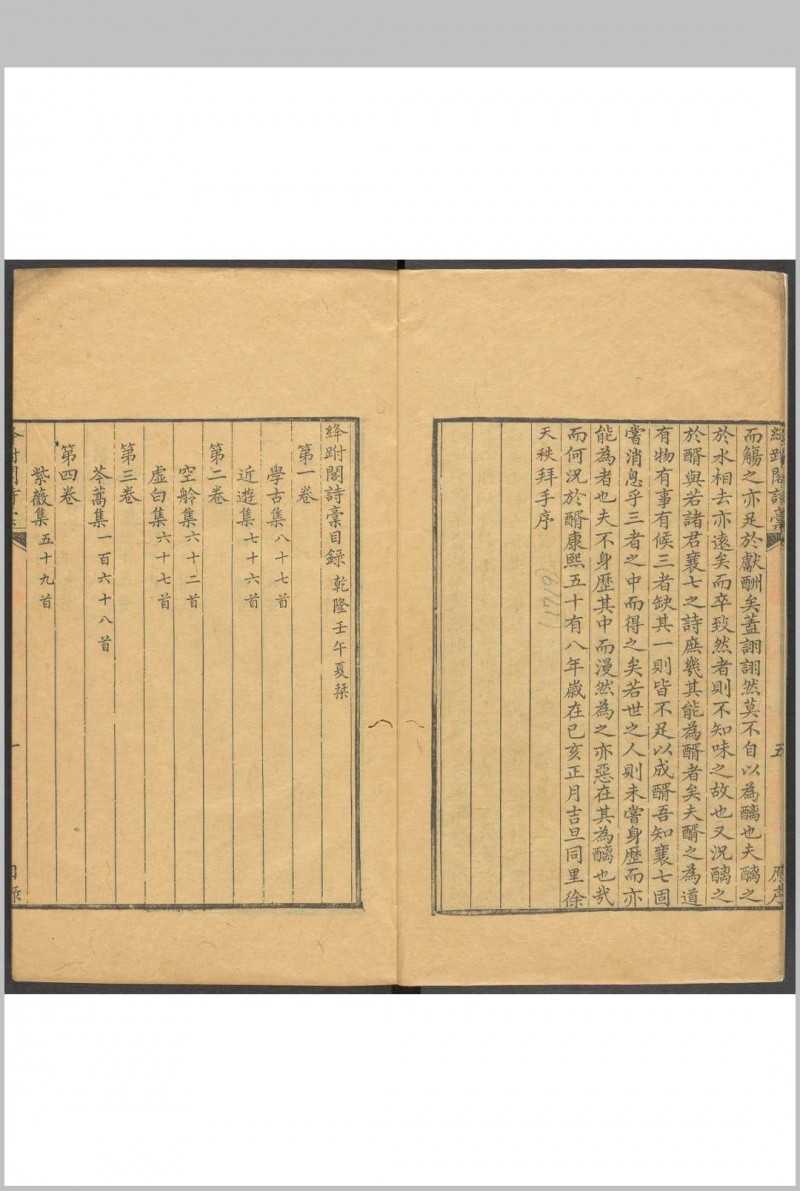 絳跗閣詩稾
五
原序
而觴之亦足於獻酬矣蓋詡詡然莫不自以為醨也夫醨之
於水相去亦遠矣而卒致然者則不知味之故也又況醨之
於醑與若諸君襄七之詩庶幾其能為醑者矣夫醑之為道
有物有事有候三者缺其一則皆不足以成醑吾知襄七固
嘗消息乎三者之中而得之矣若世之人則未嘗身歷而亦
能為者也夫不身歷其中而漫然為之亦惡在其為醨也哉
而何況於醑康熙五十有八年歲在己亥正月吉旦同里徐
天秩拜手序
(1719)
絳跗閣詩稾目錄 乾隆壬午夏栞
第一卷
學古集八十七首
近遊集七十六首
第二卷
空舲集六十二首
虛白集六十七首
第三卷
苓蒿集一百六十八首
第四卷
紫薇集五十九首
絳跗閣詩稾
一
目錄